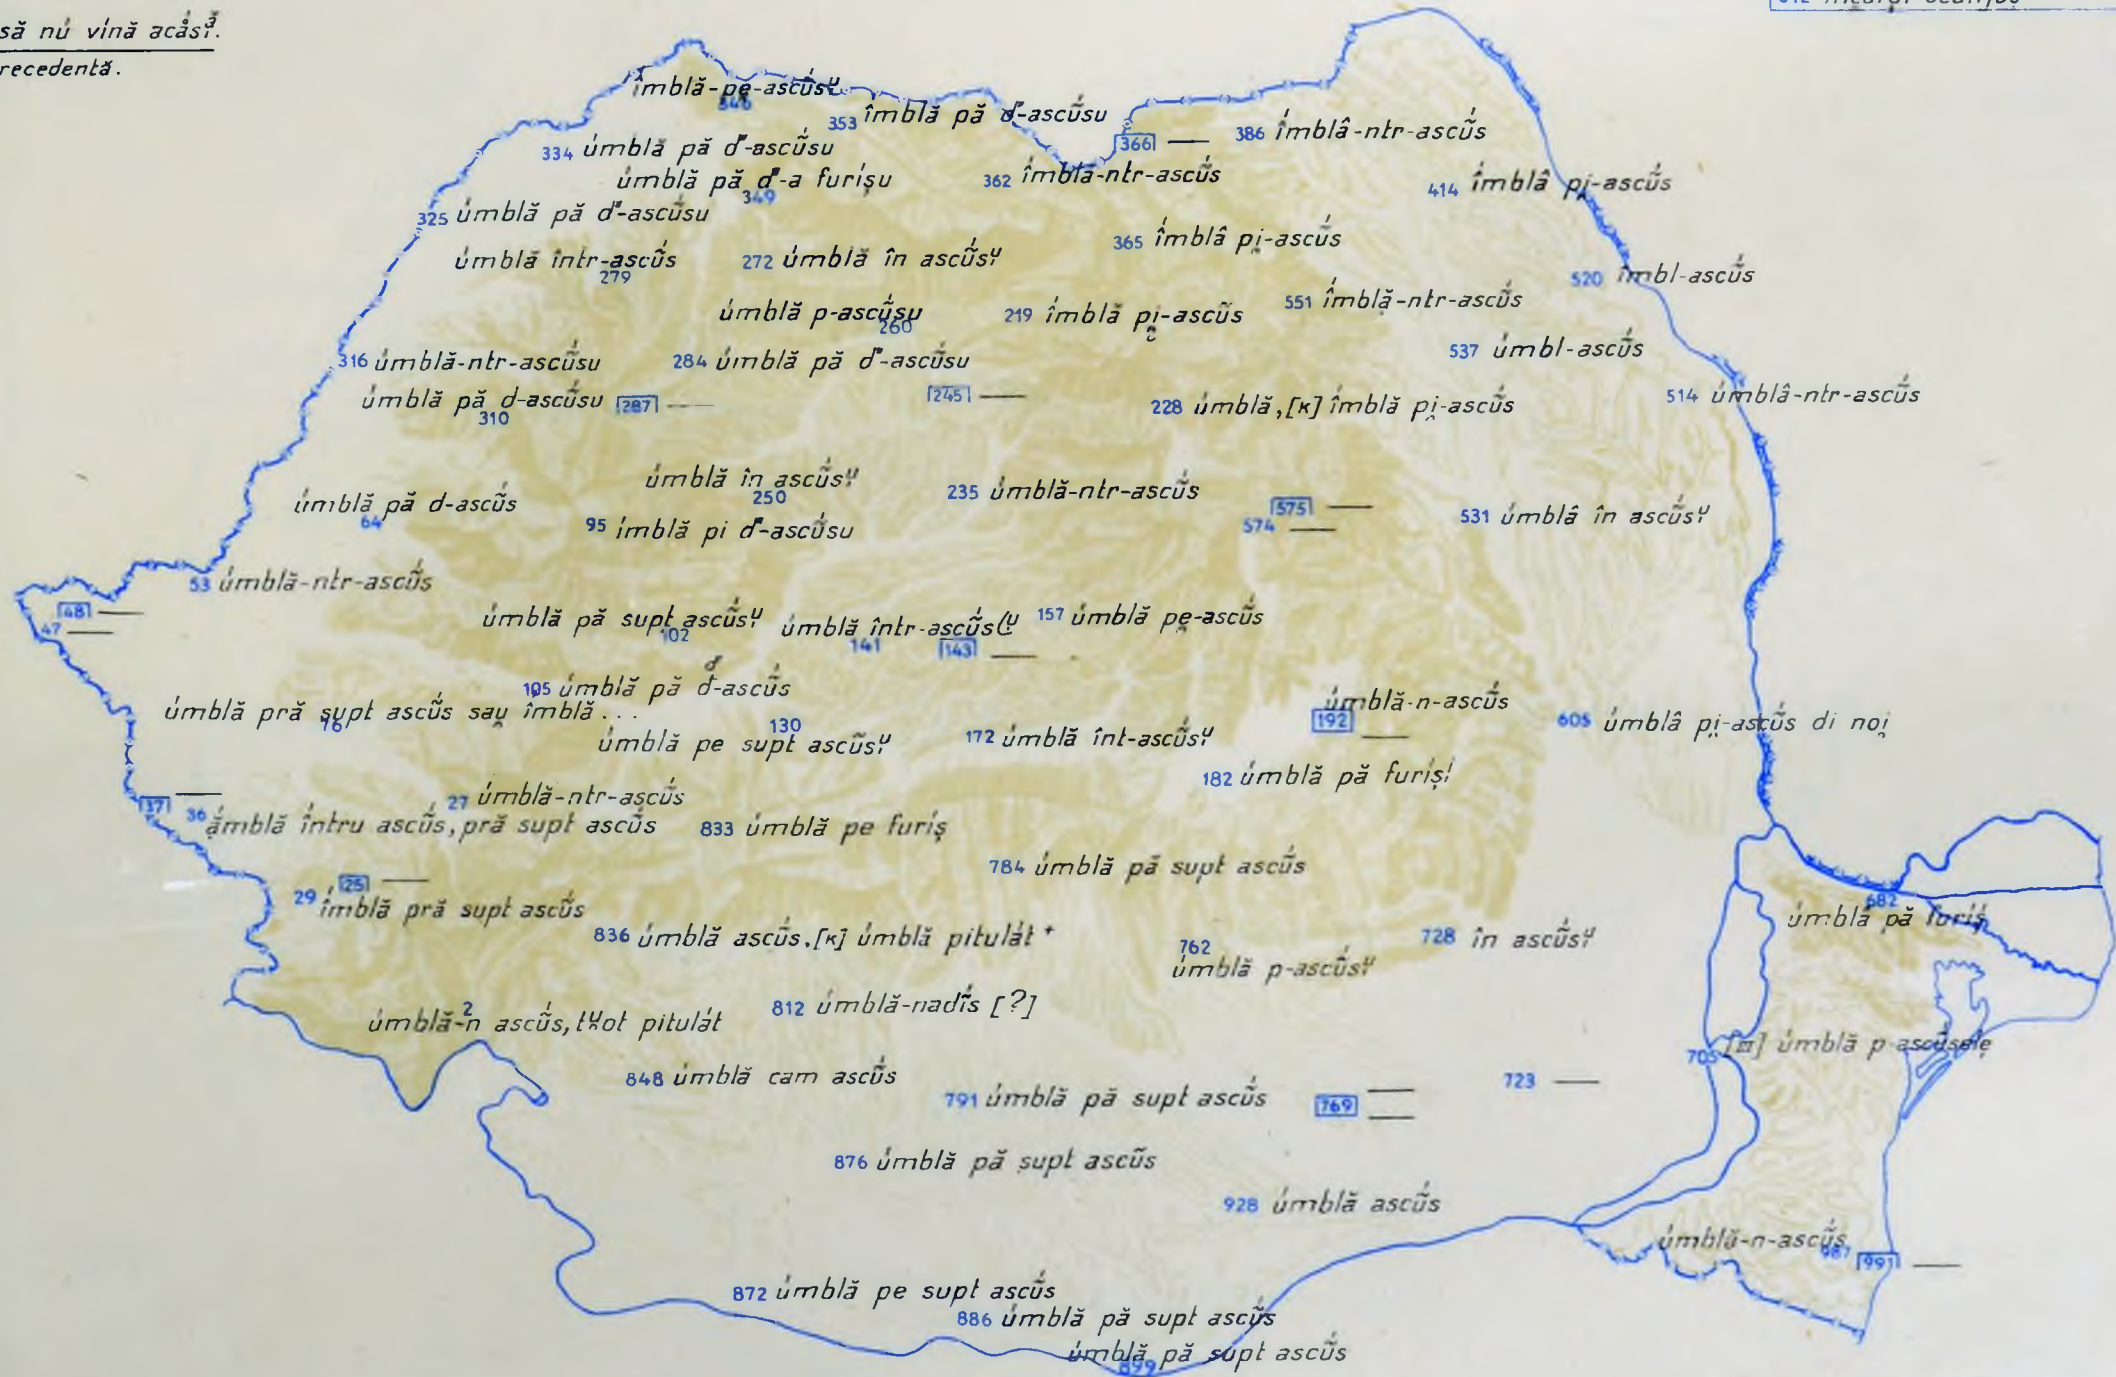 să nú vínă acásĭ³.
recedentă.
ímblă-pe̯-ascúns͡ᵘ
346
353 ímblă pă d-ascúsu
366 —
386 ímblâ-ntr-ascús
334 úmblă pă d-ascúsu
úmblă pă d-a furíșu
349
362 ímblă-ntr-ascús
414 ímblâ pi̯-ascús
325 úmblă pă d-ascúsu
úmblă într-ascús
279
272 úmblă în ascúsᵘ
365 ímblâ pi̯-ascús
520 ímbl-ascús
úmblă p-ascúsu
260
219 ímblă pi̯-ascús
551 ímblă-ntr-ascús
316 úmblă-ntr-ascúsu
284 úmblă pă d-ascúsu
537 úmbl-ascús
úmblă pă d-ascúsu
310
287 —
245 —
228 úmblă, [K] ímblă pi̯-ascús
514 úmblâ-ntr-ascús
úmblă pă d-ascús
64
úmblă în ascúsᵘ
250
95 ímblă pi d-ascúsu
235 úmblă-ntr-ascús
575 —
574 —
531 úmblâ în ascúsᵘ
53 úmblă-ntr-ascús
48 —
47 —
úmblă pă supt ascúsᵘ
102
úmblă într-ascús(ᵘ
141
143 —
157 úmblă pe̯-ascús
105 úmblă pă d-ascús
úmblă pră supt ascús sau̯ ímblă ...
76
130
úmblă pe supt ascúsᵘ
172 úmblă înt-ascúsᵘ
úmblă-n-ascús
192 —
605 úmblâ pi̯-ascús di noi̯
182 úmblă pă furíșⁱ
37 —
27 úmblă-ntr-ascús
36 ắmblă întru ascús, pră supt ascús
833 úmblă pe furíș
784 úmblă pă supt ascús
25 —
29 ímblă pră supt ascús
836 úmblă ascús, [K] úmblă pitulát +
762
úmblă p-ascúsᵘ
728 în ascúsᵘ
682
úmblă pă furíș
2
úmblă-n ascús, tᵘot pitulát
812 úmblă-nadís [?]
705 [III] úmblă p-ascúsele̯
848 úmblă cam ascús
791 úmblă pă supt ascús
769 —
723 —
876 úmblă pă supt ascús
928 úmblă ascús
úmblă-n-ascús
987
991 —
872 úmblă pe supt ascús
886 úmblă pă supt ascús
úmblă pă supt ascús
899